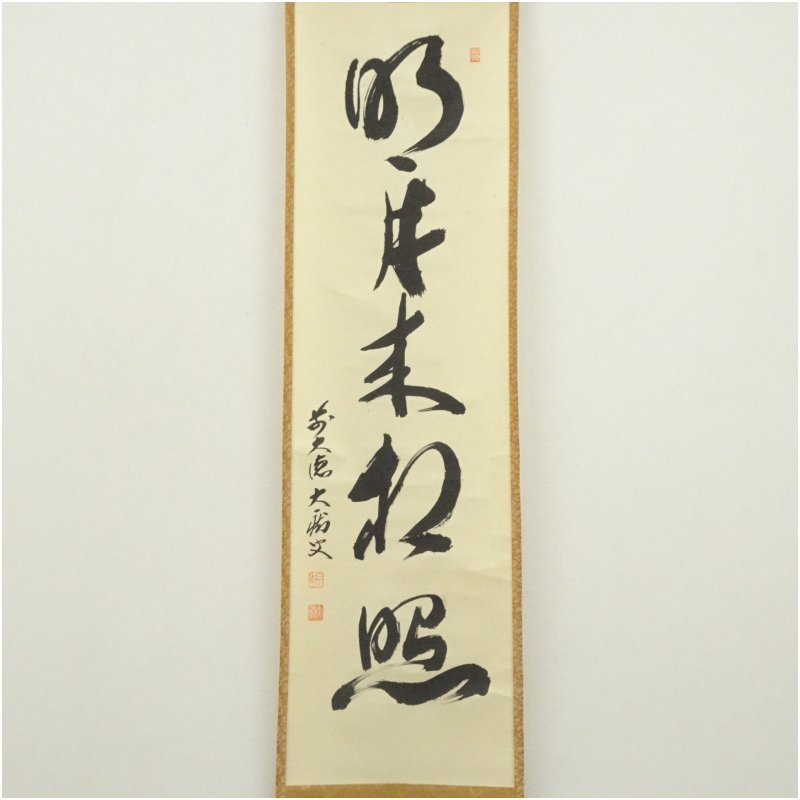 明月来相照
前大徳大